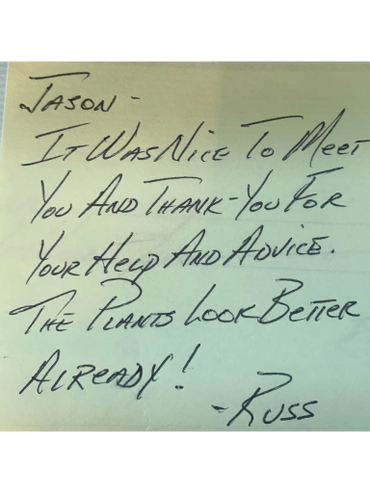 JASON-
IT WAS NICE TO MEET
YOU AND THANK-YOU FOR
YOUR HELP AND ADVICE.
THE PLANTS LOOK BETTER
ALREADY!
-RUSS